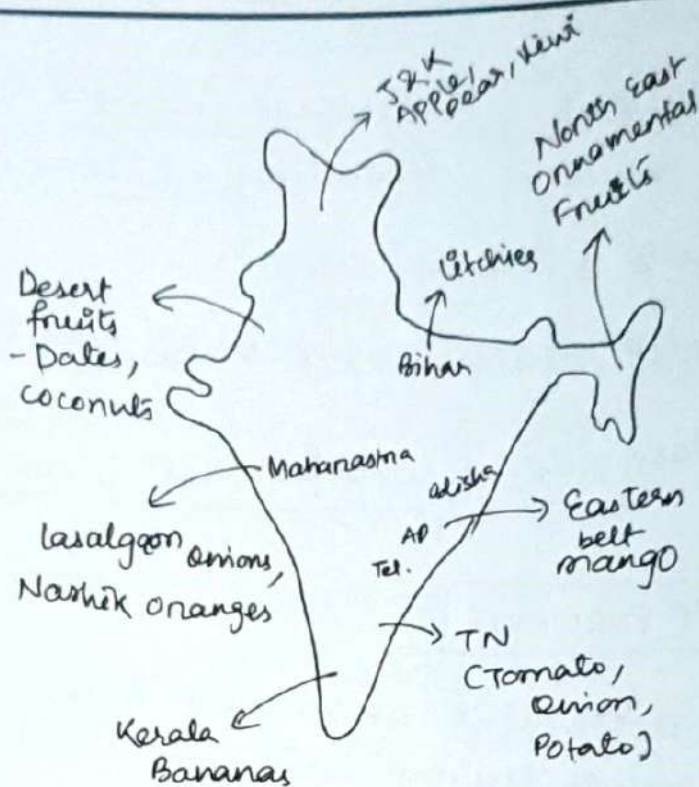 J & K
Apple,
pear, kiwi
North East
Ornamental
Fruits
Litchies
Bihar
Desert
fruits
- Dates,
coconuts
Maharastra
Lasalgaon onions,
Nashik oranges
odisha
AP
Tel.
Eastern
belt
mango
TN
(Tomato,
onion,
Potato)
Kerala
Bananas